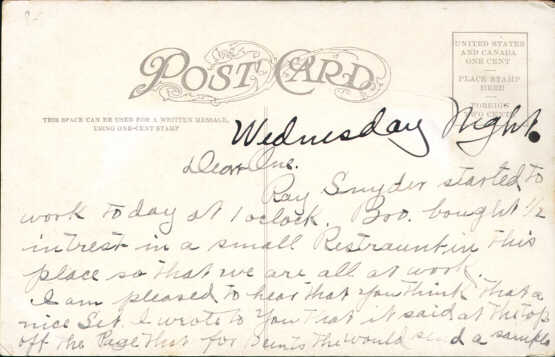 POST CARD
UNITED STATES
AND CANADA
ONE CENT
PLACE STAMP
HERE
FOREIGN
TWO CENTS
THIS SPACE CAN BE USED FOR A WRITTEN MESSAGE,
USING ONE-CENT STAMP
Wednesday Night.
Dear One.
Ray Snyder started to
work today at 1 oclock. Boo. bought 1/2
intrest in a small Restraunt in this
place so that we are all at work.
I am pleased to hear that you think that a
nice Set. I wrote to you that it said at the top
off the Page that for 8 cents the would send a sample